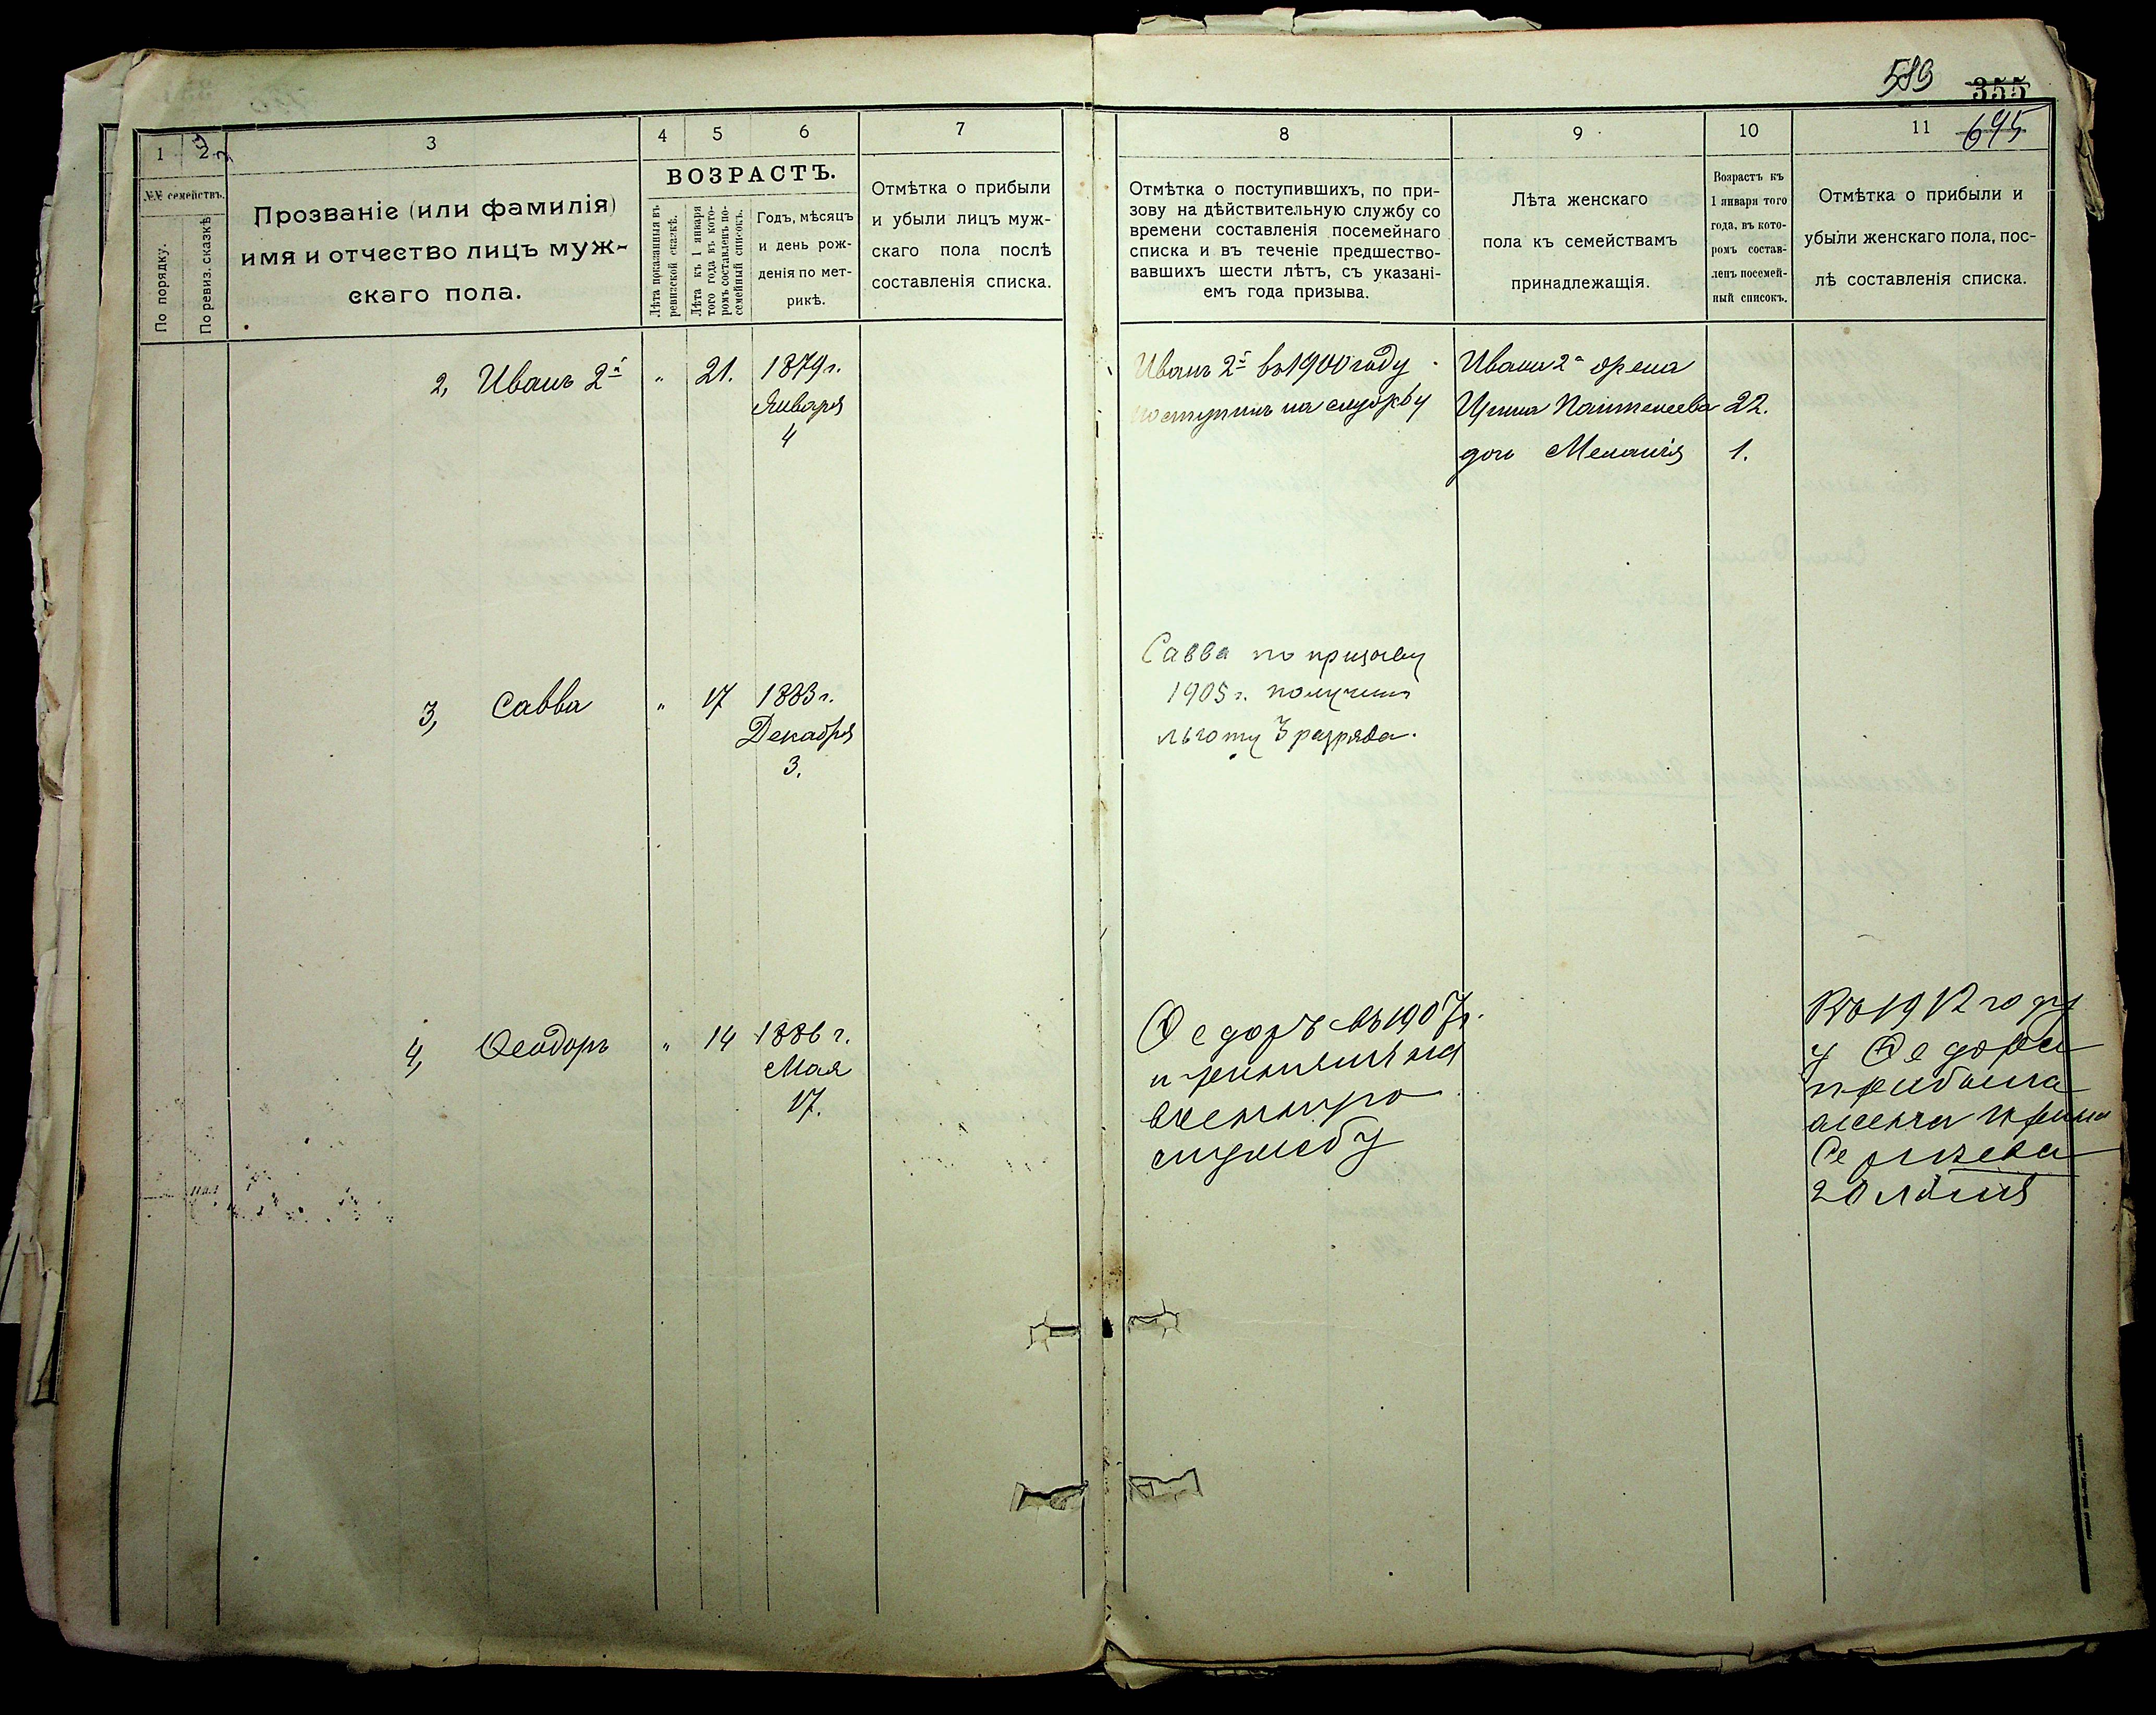 589 355
645
1 2 3 4 5 6 7 8 9 10 11
№№ семействъ.
По порядку.
По ревиз. сказкѣ
Прозваніе (или фамилія)
имя и отчество лицъ муж-
скаго пола.
ВОЗРАСТЪ.
Лѣта показанныя въ
ревизской сказкѣ.
Лѣта къ 1 января
того года въ кото-
ромъ составленъ по-
семейный списокъ.
Годъ, мѣсяцъ
и день рож-
денія по мет-
рикѣ.
Отмѣтка о прибыли
и убыли лицъ муж-
скаго пола послѣ
составленія списка.
Отмѣтка о поступившихъ, по при-
зову на дѣйствительную службу со
времени составленія посемейнаго
списка и въ теченіе предшество-
вавшихъ шести лѣтъ, съ указані-
емъ года призыва.
Лѣта женскаго
пола къ семействамъ
принадлежащія.
Возрастъ къ
1 января того
года, въ кото-
ромъ состав-
ленъ посемей-
ный списокъ.
Отмѣтка о прибыли и
убыли женскаго пола, пос-
лѣ составленія списка.
2, Иванъ 2й " 21. 1879 г.
Января
4
Иванъ 2й въ 1900 году
поступилъ на службу
Ивана 2а жена
Ирина Пантелеева 22.
дочь Меланія 1.
3, Савва " 17 1883 г.
Декабря
3.
Савва по призыву
1905 г. получилъ
льготу 3 разряда.
4, Ѳеодоръ " 14 1886 г.
Мая
17.
Ѳедоръ въ 1907 г.
принятъ на
военную
службу
Въ 1912 году
у Ѳедора
прибыла
жена Ирина
Сергѣева
20 лѣтъ